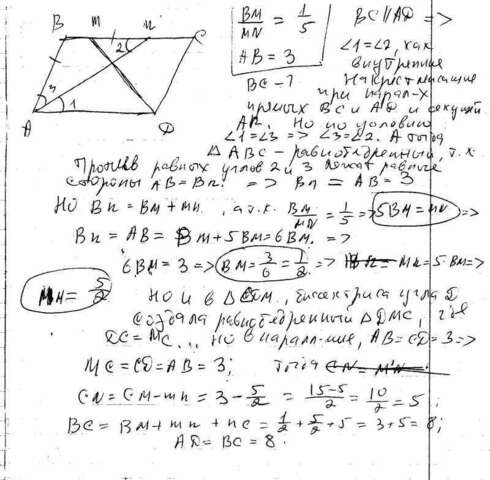 B M N C
2
3 1
A D
BM/MN = 1/5
AB = 3
BC - ?
BC ∥ AD =>
∠1=∠2, как
внутренние
накрест лежащие
при парал-х
прямых BC и AD и секущей
AN. Но по условию
∠1=∠3 => ∠3=∠2. А тогда
△ABC - равнобедренный, т.к.
Против равных углов 2 и 3 лежат равные
стороны AB=BN. => BN = AB = 3
Но BN = BM + MN, а т.к. BM/MN = 1/5 => 5BM = MN =>
BN = AB = BM + 5BM = 6BM. =>
6BM = 3 => BM = 3/6 = 1/2. => MN = 5·BM =>
MN = 5/2 Но и в △CDM, биссектриса угла D
создала равнобедренный △DMC, где
DC = MC... но в паралл-ме, AB = CD = 3 =>
MC = CD = AB = 3; тогда
CN = CM - MN = 3 - 5/2 = 15-5/2 = 10/2 = 5;
BC = BM + MN + NC = 1/2 + 5/2 + 5 = 3 + 5 = 8;
AD = BC = 8.